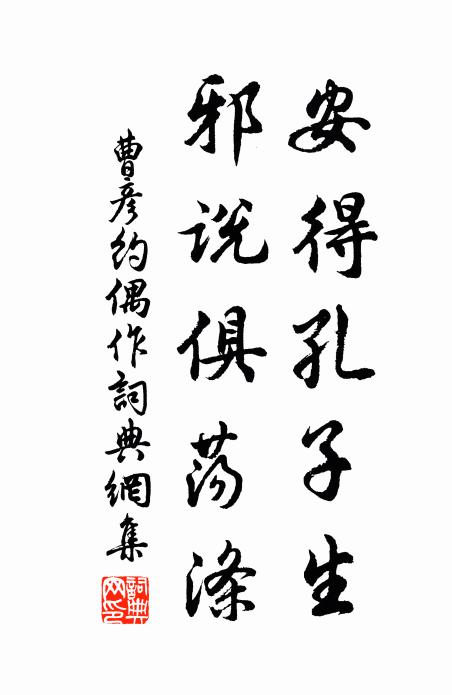 安得孔子生
邪说俱荡涤
曹彦约偶作詞典網集
詞典网印